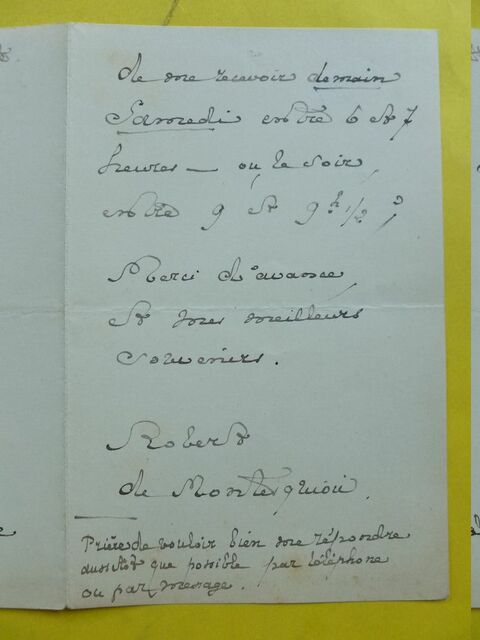 de me recevoir demain
Samedi entre 6 et 7
heures — où le soir,
entre 9 et 9h 1/2 ?
Merci d'avance,
et mes meilleurs
souvenirs.
Robert
de Montesquiou.
Prière de vouloir bien me répondre
aussitôt que possible par téléphone
ou par message.